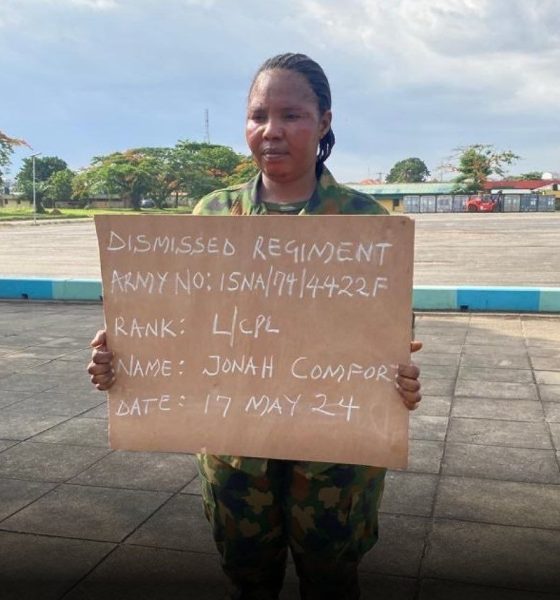 DISMISSED REGIMENT
ARMY NO: 15NA/74/4422F
RANK: L/CPL
NAME: JONAH COMFOR
DATE: 17 MAY 24